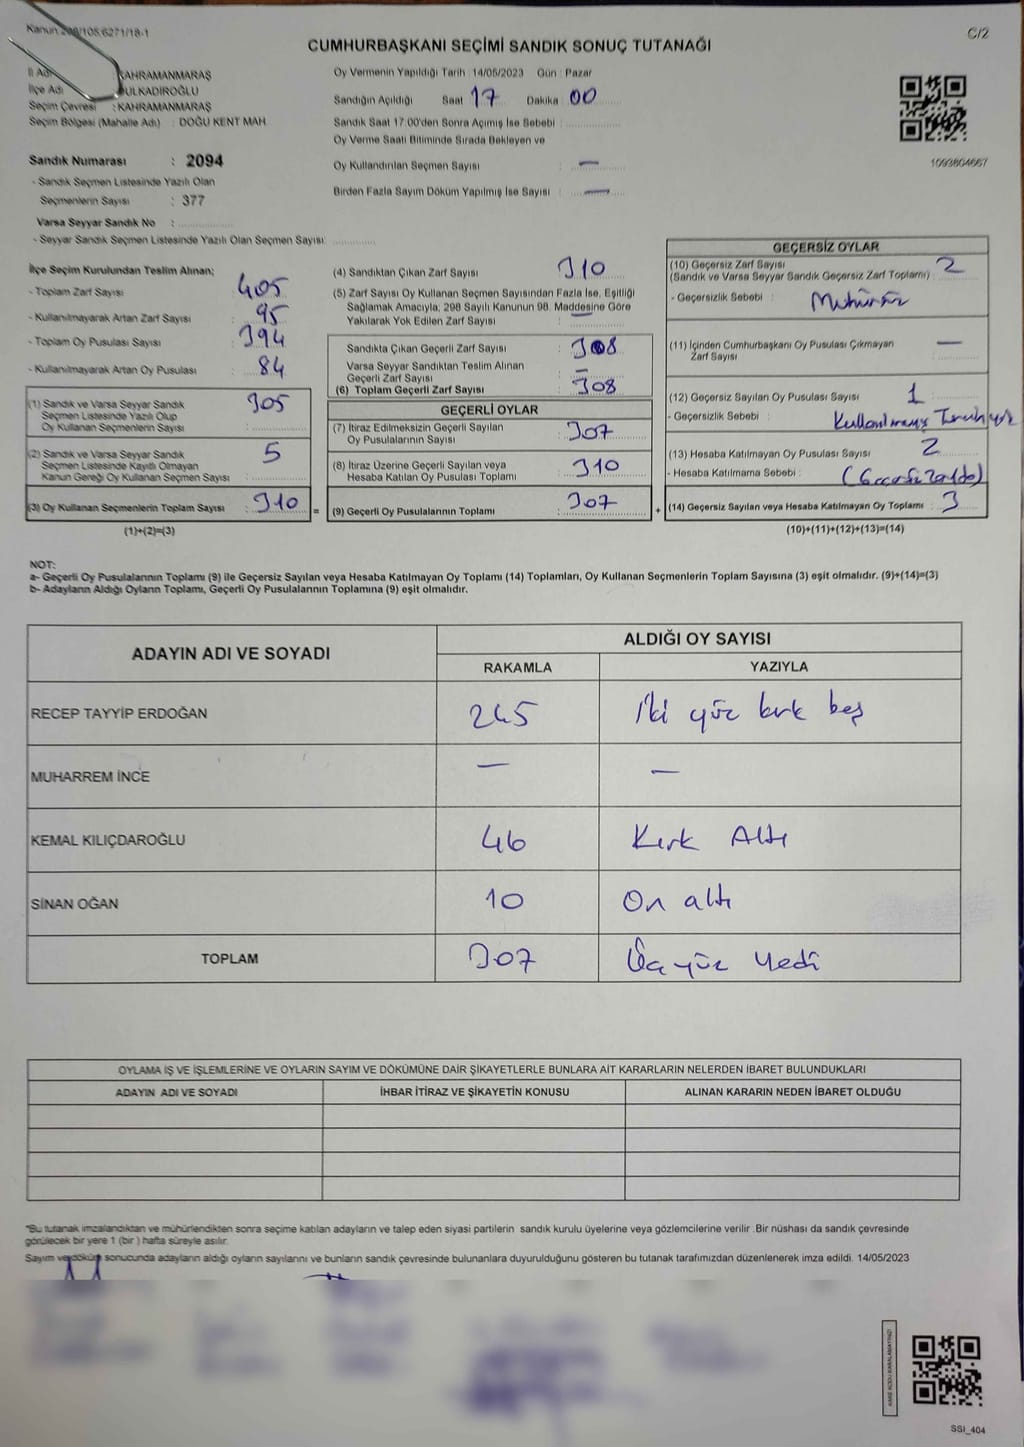 Kanun:298/105,6271/18-1
C/2
CUMHURBAŞKANI SEÇİMİ SANDIK SONUÇ TUTANAĞI
İl Adı KAHRAMANMARAŞ
İlçe Adı DULKADİROĞLU
Seçim Çevresi : KAHRAMANMARAŞ
Seçim Bölgesi (Mahalle Adı) : DOĞU KENT MAH.
Sandık Numarası : 2094
- Sandık Seçmen Listesinde Yazılı Olan
Seçmenlerin Sayısı : 377
Varsa Seyyar Sandık No :
- Seyyar Sandık Seçmen Listesinde Yazılı Olan Seçmen Sayısı:
Oy Vermenin Yapıldığı Tarih : 14/05/2023 Gün : Pazar
Sandığın Açıldığı Saat 17 Dakika : 00
Sandık Saat 17:00'den Sonra Açımış İse Sebebi :
Oy Verme Saati Bitiminde Sırada Bekleyen ve
Oy Kullandırılan Seçmen Sayısı : —
Birden Fazla Sayım Döküm Yapılmış İse Sayısı : —
1093804667
İlçe Seçim Kurulundan Teslim Alınan;
- Toplam Zarf Sayısı : 405
- Kullanılmayarak Artan Zarf Sayısı : 95
- Toplam Oy Pusulası Sayısı : 394
- Kullanılmayarak Artan Oy Pusulası : 84
(1) Sandık ve Varsa Seyyar Sandık 305
Seçmen Listesinde Yazılı Olup
Oy Kullanan Seçmenlerin Sayısı :
(2) Sandık ve Varsa Seyyar Sandık 5
Seçmen Listesinde Kayıtlı Olmayan
Kanun Gereği Oy Kullanan Seçmen Sayısı :
(3) Oy Kullanan Seçmenlerin Toplam Sayısı : 310 =
(1)+(2)=(3)
(4) Sandıktan Çıkan Zarf Sayısı : 310
(5) Zarf Sayısı Oy Kullanan Seçmen Sayısından Fazla İse, Eşitliği
Sağlamak Amacıyla, 298 Sayılı Kanunun 98. Maddesine Göre
Yakılarak Yok Edilen Zarf Sayısı : —
Sandıkta Çıkan Geçerli Zarf Sayısı : 308
Varsa Seyyar Sandıktan Teslim Alınan
Geçerli Zarf Sayısı : —
(6) Toplam Geçerli Zarf Sayısı : 308
GEÇERLİ OYLAR
(7) İtiraz Edilmeksizin Geçerli Sayılan
Oy Pusulalarının Sayısı : 307
(8) İtiraz Üzerine Geçerli Sayılan veya
Hesaba Katılan Oy Pusulası Toplamı : 310
(9) Geçerli Oy Pusulalarının Toplamı : 307 +
GEÇERSİZ OYLAR
(10) Geçersiz Zarf Sayısı 2
(Sandık ve Varsa Seyyar Sandık Geçersiz Zarf Toplamı) :
- Geçersizlik Sebebi : Mühürsüz
(11) İçinden Cumhurbaşkanı Oy Pusulası Çıkmayan —
Zarf Sayısı
(12) Geçersiz Sayılan Oy Pusulası Sayısı : 1
- Geçersizlik Sebebi : Kullanılmamış Tercih yok
(13) Hesaba Katılmayan Oy Pusulası Sayısı : 2
- Hesaba Katılmama Sebebi : (Geçersiz Zarfda)
(14) Geçersiz Sayılan veya Hesaba Katılmayan Oy Toplamı : 3
(10)+(11)+(12)+(13)=(14)
NOT:
a- Geçerli Oy Pusulalarının Toplamı (9) ile Geçersiz Sayılan veya Hesaba Katılmayan Oy Toplamı (14) Toplamları, Oy Kullanan Seçmenlerin Toplam Sayısına (3) eşit olmalıdır. (9)+(14)=(3)
b- Adayların Aldığı Oyların Toplamı, Geçerli Oy Pusulalarının Toplamına (9) eşit olmalıdır.
ADAYIN ADI VE SOYADI
ALDIĞI OY SAYISI
RAKAMLA YAZIYLA
RECEP TAYYİP ERDOĞAN 245 İki yüz kırk beş
MUHARREM İNCE — —
KEMAL KILIÇDAROĞLU 46 Kırk Altı
SİNAN OĞAN 10 On altı
TOPLAM 307 Üç yüz Yedi
OYLAMA İŞ VE İŞLEMLERİNE VE OYLARIN SAYIM VE DÖKÜMÜNE DAİR ŞİKAYETLERLE BUNLARA AİT KARARLARIN NELERDEN İBARET BULUNDUKLARI
ADAYIN ADI VE SOYADI İHBAR İTİRAZ VE ŞİKAYETİN KONUSU ALINAN KARARIN NEDEN İBARET OLDUĞU
*Bu tutanak imzalandıktan ve mühürlendikten sonra seçime katılan adayların ve talep eden siyasi partilerin sandık kurulu üyelerine veya gözlemcilerine verilir .Bir nüshası da sandık çevresinde
görülecek bir yere 1 (bir ) hafta süreyle asılır.
Sayım ve döküm sonucunda adayların aldığı oyların sayılarını ve bunların sandık çevresinde bulunanlara duyurulduğunu gösteren bu tutanak tarafımızdan düzenlenerek imza edildi. 14/05/2023
KARE KODU KARALAMAYINIZ!
SSI_404